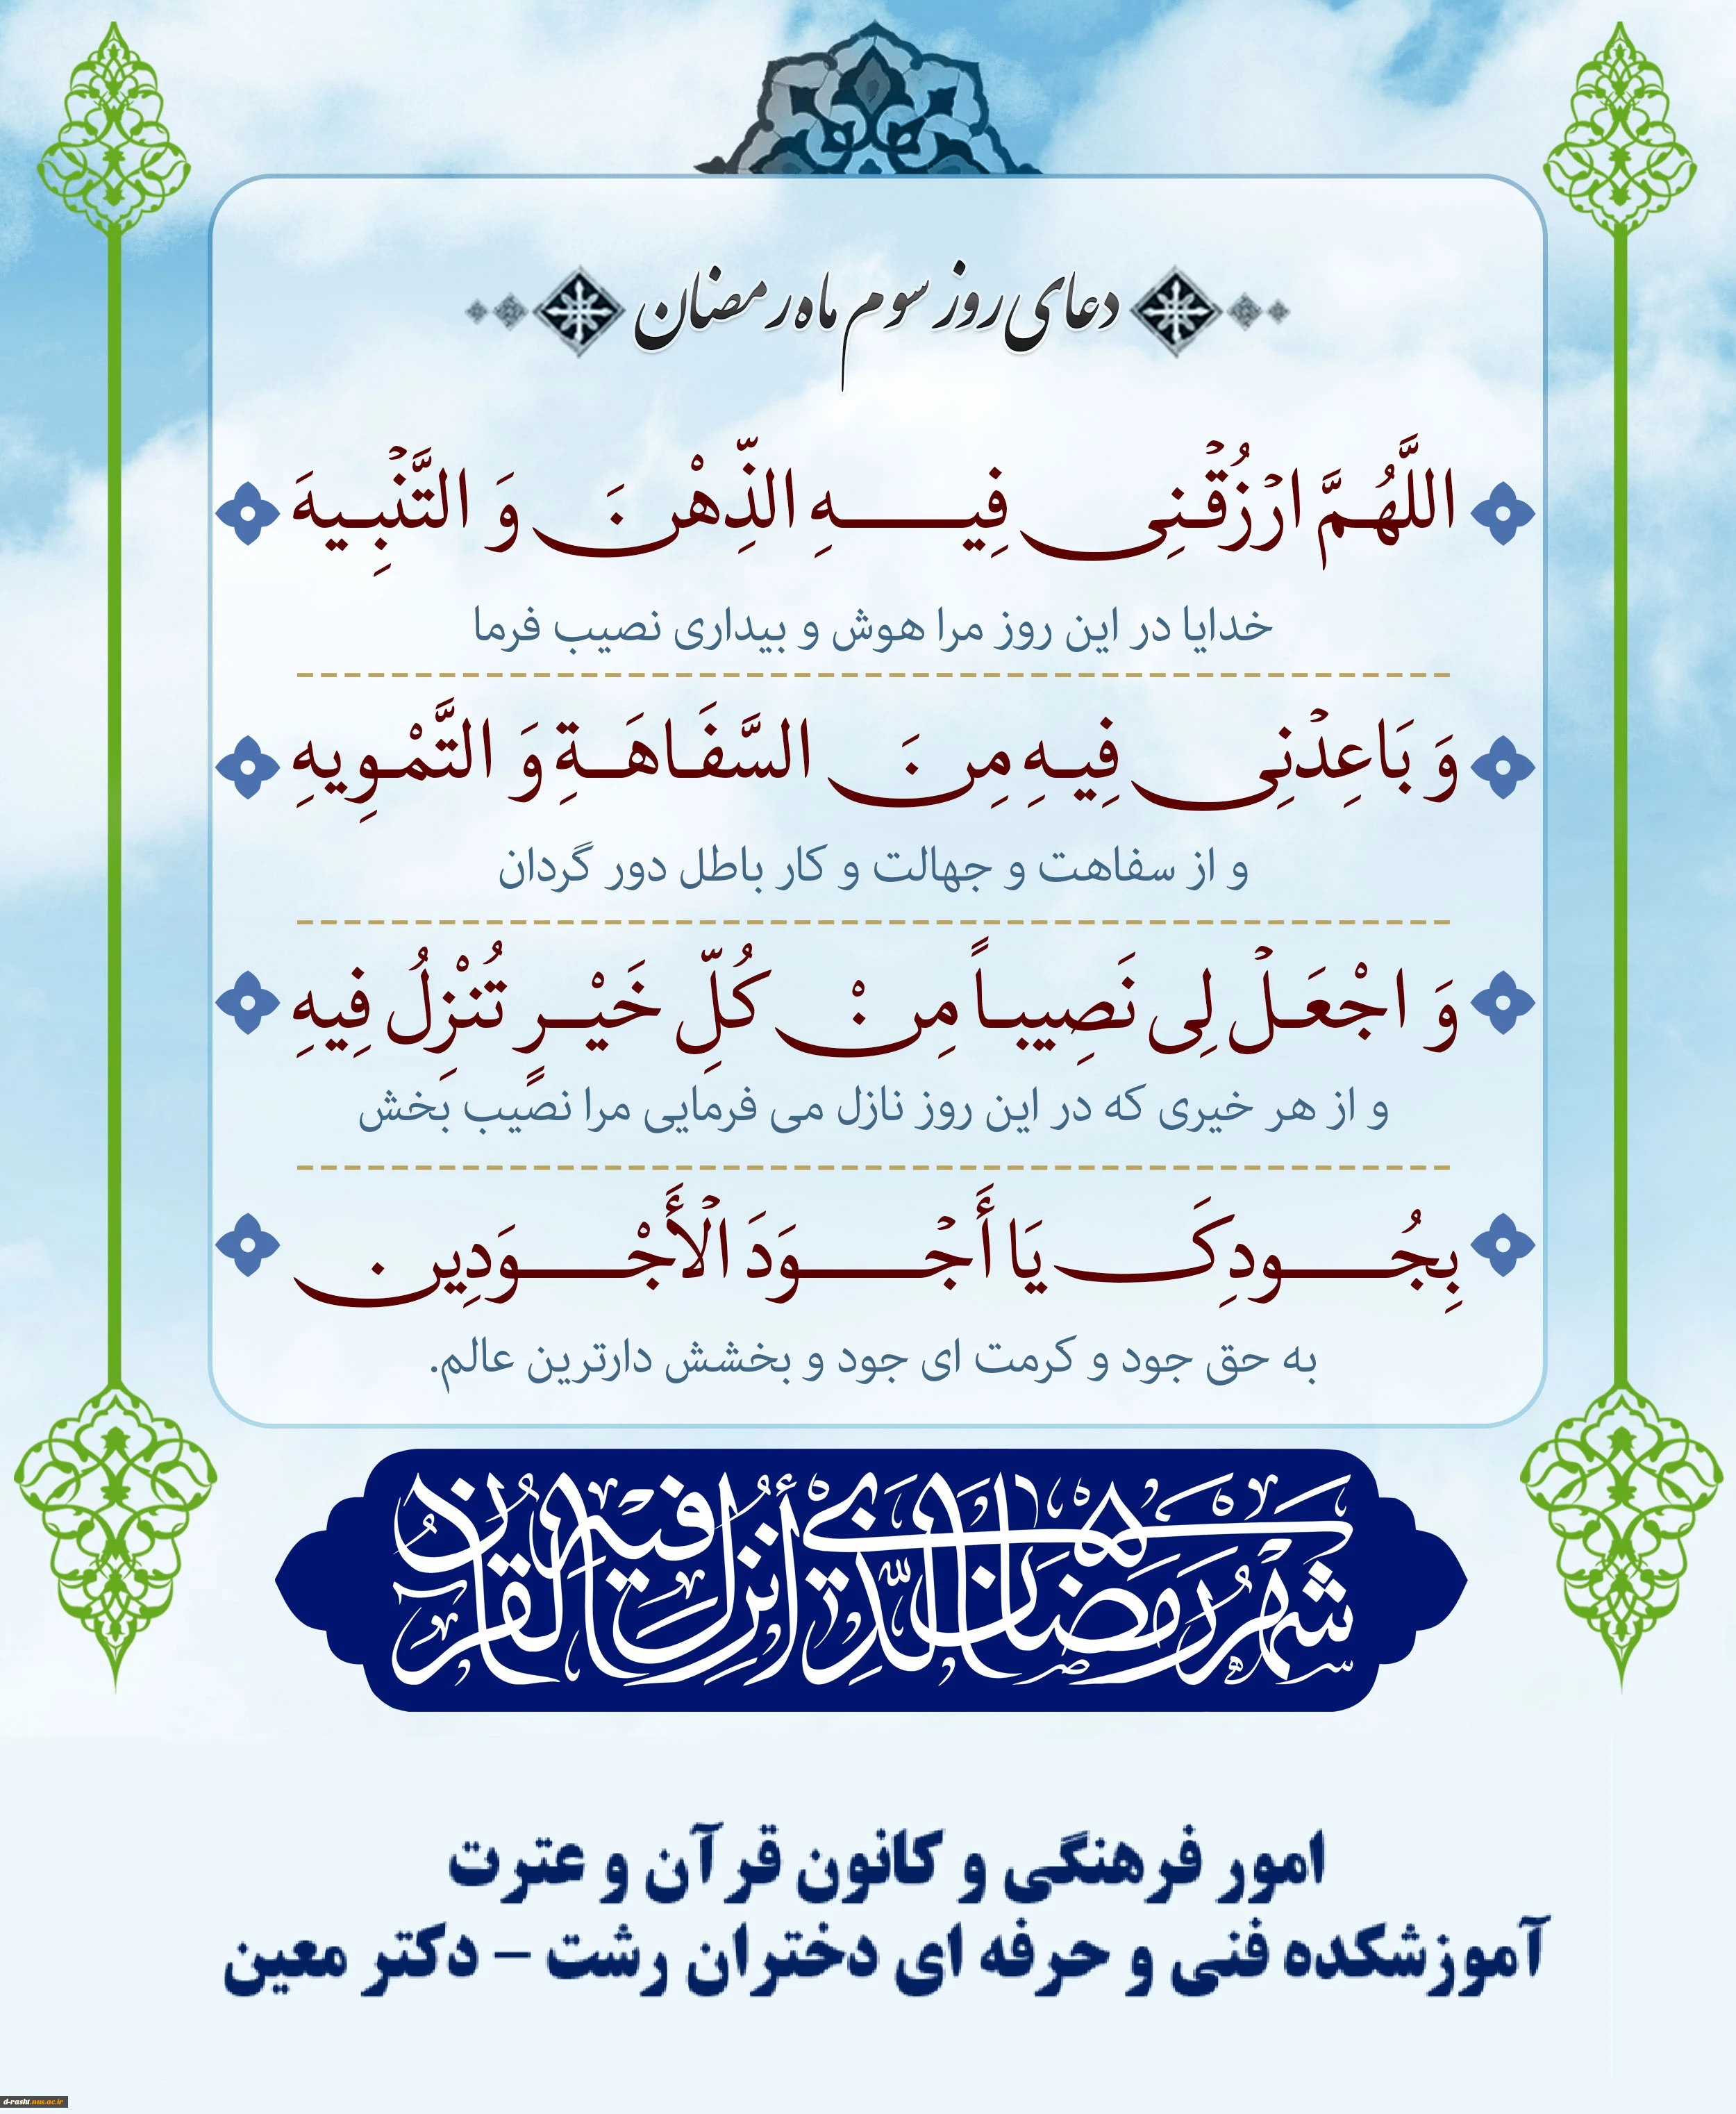 دعای روز سوم ماه رمضان
اللَّهُمَّ ارْزُقْنِی فِیهِ الذِّهْنَ وَ التَّنْبِیهَ
خدایا در این روز مرا هوش و بیداری نصیب فرما
وَ بَاعِدْنِی فِیهِ مِنَ السَّفَاهَةِ وَ التَّمْوِیهِ
و از سفاهت و جهالت و کار باطل دور گردان
وَ اجْعَلْ لِی نَصِیباً مِنْ کُلِّ خَیْرٍ تُنْزِلُ فِیهِ
و از هر خیری که در این روز نازل می فرمایی مرا نصیب بخش
بِجُودِکَ یَا أَجْوَدَ الْأَجْوَدِین
به حق جود و کرمت ای جود و بخشش دارترین عالم.
شهر رمضان الذی أنزل فیه القرآن
امور فرهنگی و کانون قرآن و عترت
آموزشکده فنی و حرفه ای دختران رشت – دکتر معین
d-rasht.nus.ac.ir